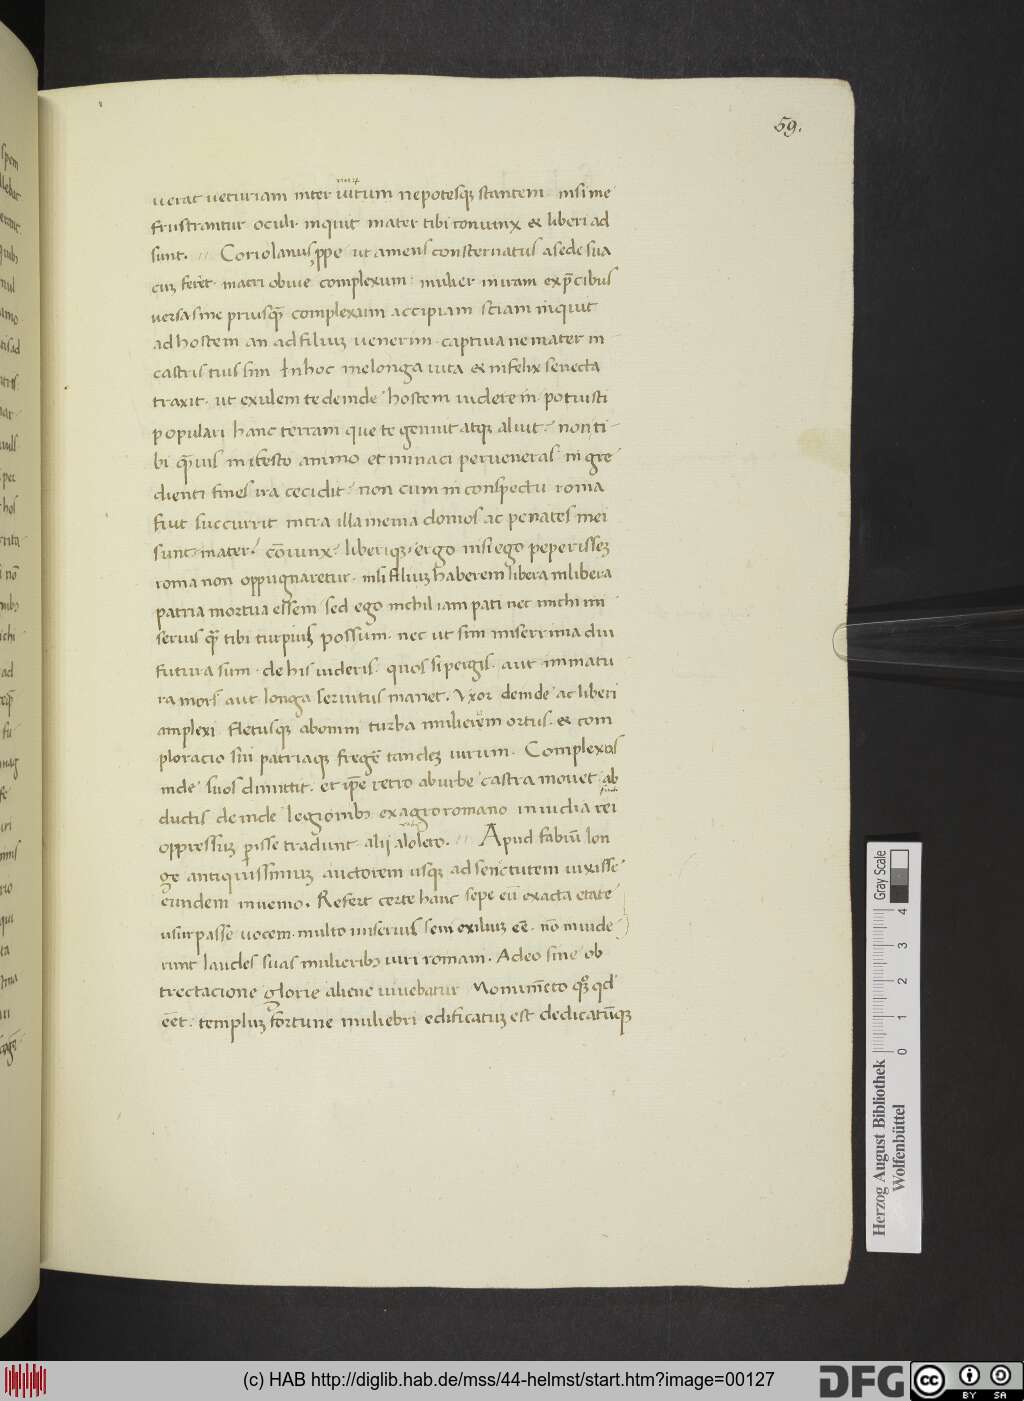 59.
uerat ueturiam inter uirum nepotesq; stantem . nisi me
frustrantur oculi inquit mater tibi coniunx & liberi ad
sunt. Coriolanus ꝓpe ut amens consternatus a sede sua
cuȝ feret matri obuie complexum . mulier in iram ex p̄cibus
uersa sine priusq̄ complexum accipiam sciam inquit
ad hostem an ad filiuȝ uenerim . captiua ne mater in
castris tuis sim . In hoc me longa uita & infelix senecta
traxit . ut exulem te deinde hostem uiderem . potuisti
populari hanc terram que te genuit atq; aluit . non ti
bi q̄uis infesto animo et minaci perueneras in gre
dienti fines ira cecidit . non cum in conspectu roma
fuit succurrit intra illa menia domos ac penates mei
sunt mater . cōiunx liberiq; ergo nisi ego peperisseȝ
roma non oppugnaretur . nisi filiuȝ haberem libera in libera
patria mortua essem sed ego nichil iam pati nec michi mi
serius q̄ tibi turpius possum . nec ut sim miserrima diu
futura sum . de his uideris . quos si pergis . aut inmatu
ra mors aut longa seruitus manet . Vxor deinde ac liberi
amplexi fletusq; ab omni turba mulierem ortus . & com
ploracio sui patriaq; fregē tandeȝ uirum . Complexos
inde suos dimittit . et ip̄e retro ab urbe castra mouet . ab
ductis deinde legionib; ex agro romano inuidia rei
oppressuȝ perisse tradunt alij alio leto . Apud fabiū lon
ge antiquissimuȝ auctorem usq; ad senectutem uixisse
eundem inuenio . Refert certe hanc sepe eū exacta etate
usurpasse uocem . multo miserius seni exiliuȝ eē . nō inuide
runt laudes suas mulierib; uiri romani . Adeo sine ob
trectacione glorie aliene uiuebatur Monumēto
eēt . templuȝ fortune muliebri edificatuȝ est dedicatūq;
Gray Scale
0 1 2 3 4
Herzog August Bibliothek
Wolfenbüttel
(c) HAB http://diglib.hab.de/mss/44-helmst/start.htm?image=00127
DFG
cc BY SA